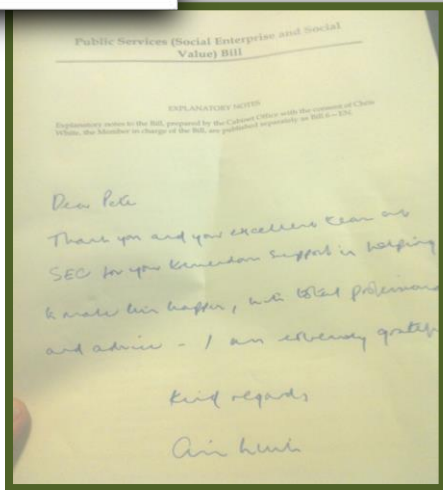 Public Services (Social Enterprise and Social
Value) Bill
EXPLANATORY NOTES
Explanatory notes to the Bill, prepared by the Cabinet Office with the consent of Chris
White, the Member in charge of the Bill, are published separately as Bill 6—EN.
Dear Peter
Thank you and your excellent team at
SEC for your tremendous support in helping
to make this happen, with total professional
and advice - I am extremely grateful
Kind regards